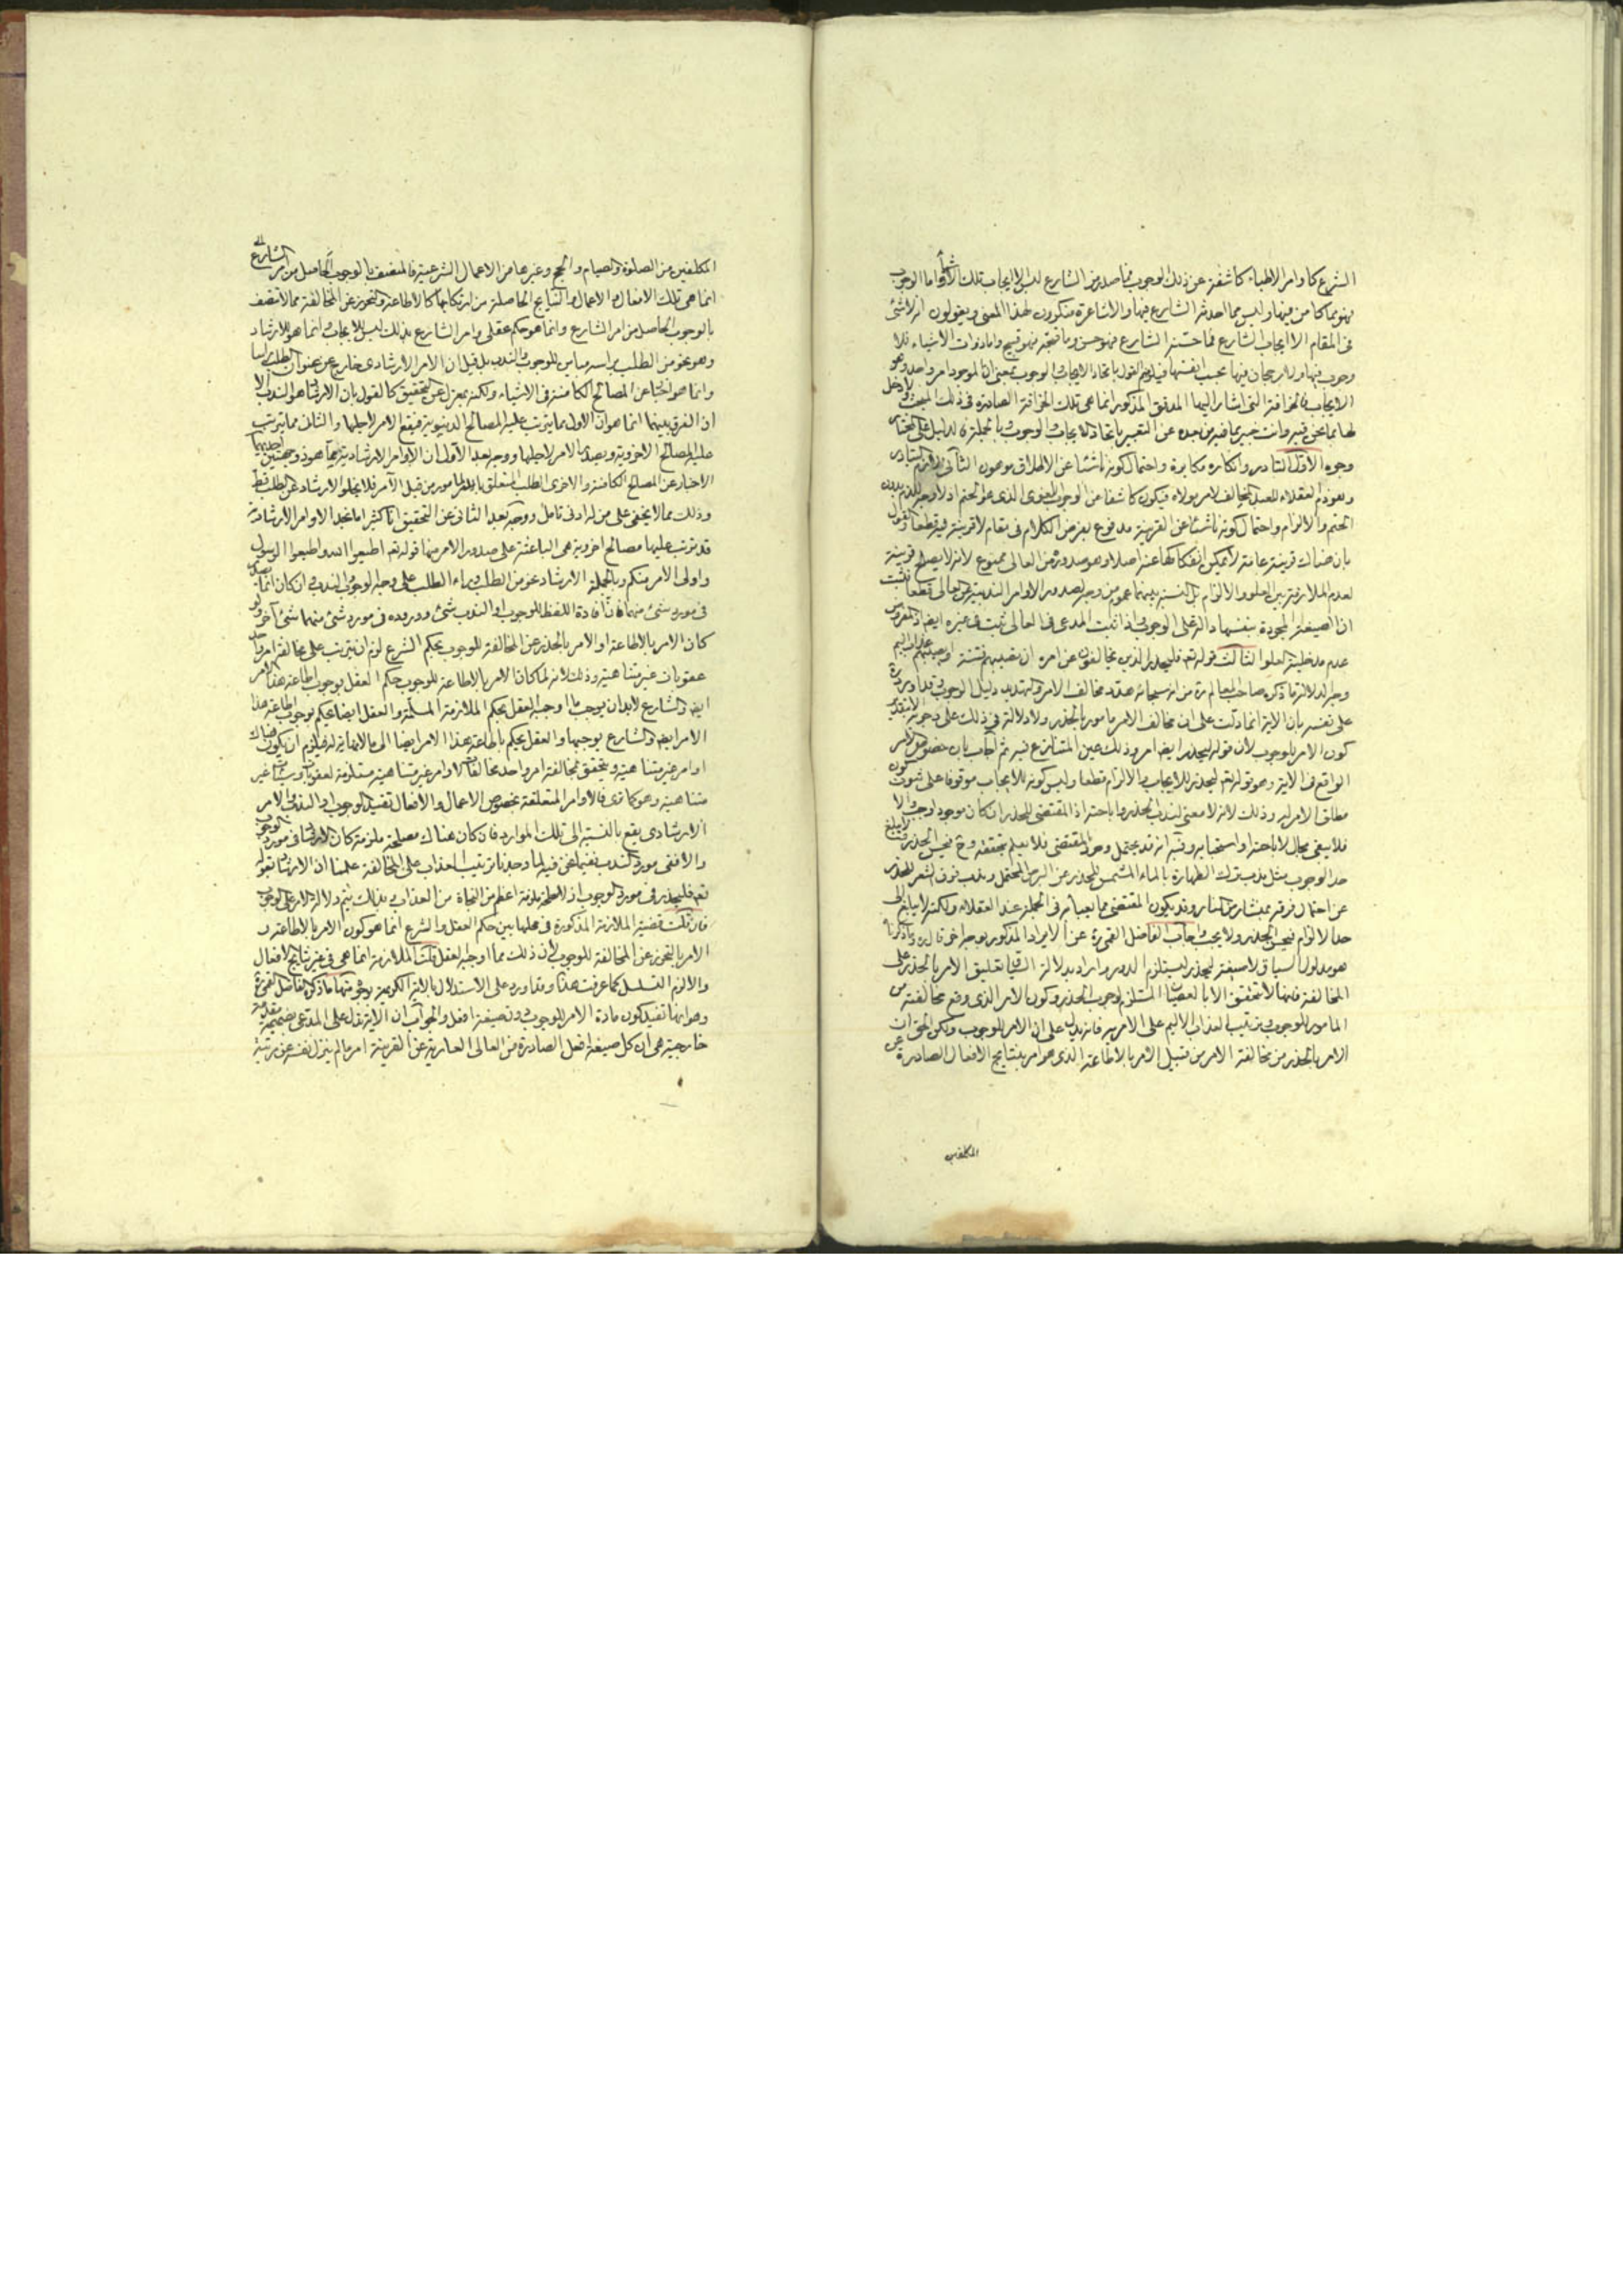 الشرع كاوامر الاطباء كاشفة عن ذلك الوجوب فما صدر من الشارع ليس الا ايجاب تلك الاشياء واما الوجوب
فهو مما كامن فيها وليس مما احدثه الشارع فيها والاشاعرة منكرون لهذا المعنى ويقولون انه لا شئ
فى المقام الا ايجاب الشارع فما حسنه الشارع فهو حسن وما قبحه فهو قبيح واما ذوات الاشياء فلا
وجوب فيها ولا رجحان فيها بحسب انفسها فيلزمهم القول باتحاد الايجاب والوجوب بمعنى ان الموجود امر واحد وهو
الايجاب فالخرافة التى اشار اليها المدقق المذكور انما هى تلك الخرافة الصادرة فى ذلك المبحث ولا دخل
لها بما نحن فيه وانت خبير بما فيه من بعده عن التعبير باتحاد الايجاب والوجوب وبالجملة فالدليل على المختار
وجوه الاول التبادر وانكاره مكابرة واحتمال كونه ناشئا عن الاطلاق موهون الثانى
العقلاء للعبد المخالف لامر مولاه فيكون كاشفا عن الوجوب اللغوى الذى هو الحتم اذ لا وجه للذم بدون
الحتم والالزام واحتمال كونه ناشئا عن القرينة مدفوع بفرض الكلام فى مقام لا قرينة فيه قطعا والقول
بان هناك قرينة عامة لا يمكن انفكاكها عنه اصلا وهو صدوره من العالى ممنوع لانه لا يصلح قرينة
لعدم الملازمة بين العلو والالزام بل النسبة بينهما عموم من وجه لصدور الاوامر الندبية من العالى قطعا فثبت
ان الصيغة المجردة بنفسها دالة على الوجوب فاذا ثبت المدعى فى العالى ثبت فى غيره ايضا اذ المفروض
عدم مدخلية العلو الثالث قوله تعالى فليحذر الذين يخالفون عن امره ان تصيبهم فتنة او يصيبهم عذاب اليم
وجه الدلالة ما ذكره صاحب المعالم ره من انه سبحانه هدد مخالف الامر والتهديد دليل الوجوب
على نفسه بان الاية انما دلت على ان مخالف الامر مامور بالحذر ولا دلالة فى ذلك على وجوبه الا بتقدير
كون الامر للوجوب لان قوله فليحذر ايضا امر وذلك عين المتنازع فيه ثم اجاب بان خصوص الامر
الواقع فى الاية وهو قوله تعالى فليحذر للايجاب والالزام قطعا وليس كونه للايجاب موقوفا على ثبوت كون
مطلق الامر له وذلك لانه لا معنى لندب الحذر واباحته اذ المقتضى للحذر ان كان موجودا وجب والا
فلا يبقى مجال لاباحته او استحبابه وفيه انه قد يحتمل وجود المقتضى فلا يعلم بتحققه وح فيحسن الحذر
حد الوجوب مثل ندب ترك الطهارة بالماء المشمس للحذر عن البرص المحتمل
حد الالزام فيحسن الحذر ولا يجب واجاب الفاضل القمى ره عن الايراد المذكور بوجه اخر
هو مدلول السياق لا صيغة ليحذر ليستلزم الدور واراد بدلالة السياق تعليق الامر بالحذر على
المخالفة فانها لا تتحقق الا بالعصيان المستلزم لوجوب الحذر وكون الامر الذى وقع مخالفته من
المامور للوجوب وترتيب العذاب الاليم على الامر به فانه يدل على ان الامر للوجوب ولكن الحق ان
الامر بالحذر من مخالفة الامر من قبيل الامر بالاطاعة الذى هو امر بنتايج الافعال الصادرة عن
المكلفين
المكلفين من الصلوة والصيام والحج وغيرها من الاعمال الشرعية فالمتصف بالوجوب الحاصل من امر الشارع
انما هى تلك الافعال والاعمال والنتايج الحاصلة من ارتكابها كالاطاعة والتحرز عن المخالفة مما لا يتصف
بالوجوب الحاصل من امر الشارع وانما هو حكم عقلى وامر الشارع بذلك ليس للايجاب وانما هو للارشاد
وهو نحو من الطلب براسه مباين للوجوب والندب بل قيل ان الامر الارشادى خارج عن عنوان الطلب راسا
وانما هو اخبار عن المصالح الكامنة فى الاشياء ولكنه بمعزل عن التحقيق كالقول بان الارشاد هو الندب الا
ان الفرق بينهما انما هو ان الاول مما يترتب عليه المصالح الدنيوية فيقع الامر لاجلها والثانى مما يترتب
عليه المصالح الاخروية ويصدر الامر لاجلها ووجه بعد الاول ان الاوامر الارشادية انما هو ذو جهتين احديهما
الاخبار عن المصالح الكامنة والاخرى الطلب المتعلق بالمامور من قبل الآمر فلا يخلو الارشاد عن الطلب قط
وذلك مما لا يخفى على من له ادنى تامل ووجه بعد الثانى عن التحقيق انا كثيرا ما نجد الاوامر الارشادية
قد ترتب عليها مصالح اخروية هى الباعثة على صدور الامر منها قوله تعالى اطيعوا الله واطيعوا الرسول
واولى الامر منكم وبالجملة الارشاد نحو من الطلب وراء الطلب على وجه الوجوب والندب وان كان انما يصدر
فى مورد شئ منهما فان افادة اللفظ للوجوب او الندب شئ ووروده فى مورد شئ منهما شئ آخر ولو
كان الامر بالاطاعة او الامر بالحذر عن المخالفة للوجوب بحكم الشرع لزم ان يترتب على مخالفة امر واحد
عقوبات غير متناهية وذلك لانه لما كان الامر بالاطاعة للوجوب حكم العقل بوجوب اطاعة هذا الامر
ايضا والشارع لا بد ان يوجب ما اوجبه العقل بحكم الملازمة المسلمة والعقل ايضا يحكم بوجوب اطاعة هذا
الامر ايضا والشارع يوجبها والعقل يحكم باطاعة هذا الامر ايضا الى ما لا نهاية له فيلزم ان يكون هناك
اوامر غير متناهية ويتحقق بمخالفة امر واحد مخالفة لاوامر غير متناهية مستلزمة لعقوبات غير
متناهية وهو كما ترى فالاوامر المتعلقة بخصوص الاعمال والافعال تفيد الوجوب او الندب والامر
الارشادى يقع بالنسبة الى تلك الموارد فان كان هناك مصلحة ملزمة كان الارشاد فى مورد الوجوب
والا ففى مورد الندب ففيما نحن فيه لما وجدنا ترتيب العذاب على المخالفة علمنا ان الارشاد بقوله
تعالى فليحذر فى مورد الوجوب اذ لا مصلحة ملزمة اعظم من النجاة من العذاب وبذلك يتم دلالة الامر على الوجوب
فان قلت قضية الملازمة المذكورة فى محلها بين حكم العقل والشرع انما هو كون الامر بالاطاعة و
الامر بالتحرز عن المخالفة للوجوب لان ذلك مما اوجبه العقل قلت الملازمة انما هى فى غير نتايج الافعال
والا لزم التسلسل كما عرفت هذا وقد اورد على الاستدلال بالاية الكريمة بوجوه منها ما ذكره الفاضل القمى ره
وهو انها تفيد كون مادة الامر للوجوب دون صيغة افعل والجواب ان الاية تدل على المدعى بضميمة مقدمة
خارجية هى ان كل صيغة افعل الصادرة من العالى العارية عن القرينة امر ما لم ينزل نفسه عن مرتبة